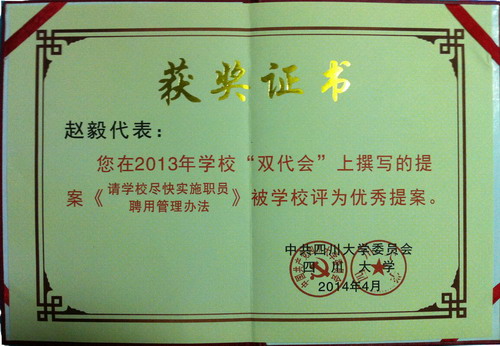 获奖证书
赵毅代表：
您在2013年学校“双代会”上撰写的提
案《请学校尽快实施职员
聘用管理办法》被学校评为优秀提案。
中共四川大学委员会
四川大学
2014年4月